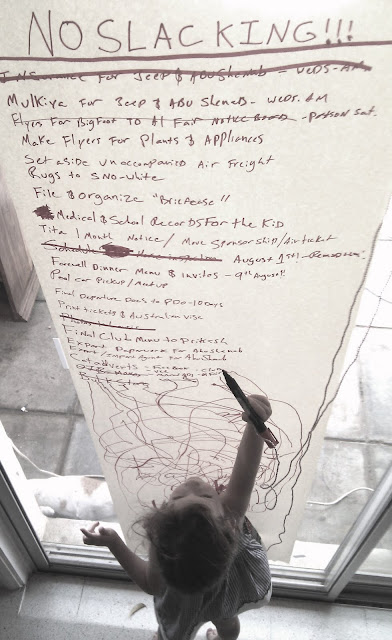 NO SLACKING!!!
Insurance For Jeep & Abu Sheneb - Weds. AM
Mulkiya For Jeep & Abu Sheneb - Weds. AM
Flyers For Bigfoot To Al Fair Notice Board - Poison Sat.
Make Flyers For Plants & Appliances
Set aside Unaccompanied Air Freight
Rugs to Sno-White
File & organize "Briefcase"
Medical & School Records For the Kid
Tita 1 Month Notice / Move Sponsorship / Air ticket
August 1st!
Farewell Dinner Menu & Invites - 9th August!!
Pool car Pickup / Meetup
Final Departure Docs to PDO - 10 days
Print tickets & Australian visa
Final Club Menu to Pritesh
Export Paperwork For Abu Sheneb
Export/Import Agent For Abu Sheneb